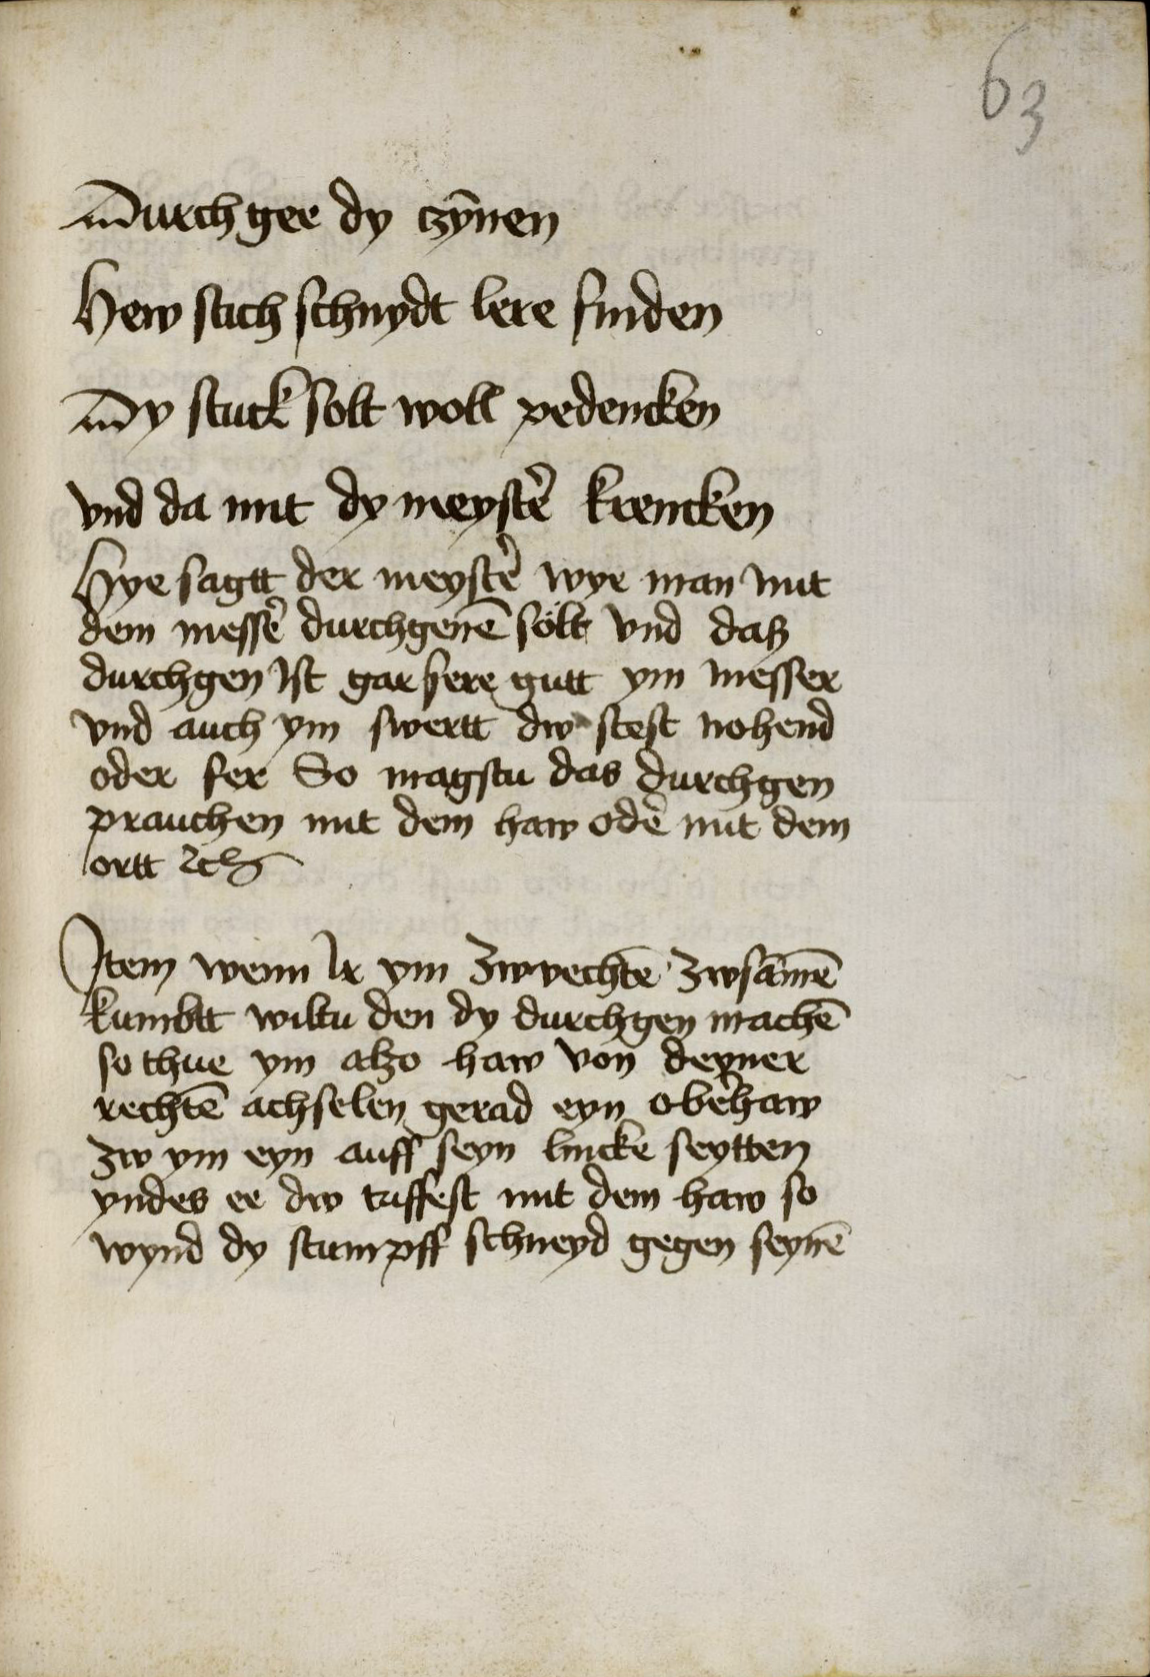 63
Durch gee dy czȳnen
Hew stich schnydt lere finden
Dy stuck solt woll pedencken
vnd da mit dy meystẽ krencken
Hye sagtt der meystẽ wye man mit
dem messẽ durchgenē sölt vnd daß
durchgen Ist gar sere gutt ym messer
vnd auch ym swertt dw stest nohend
oder fer So magstu das durchgen
prauchen mit dem haw odẽ mit dem
ortt ꝛcß
Item wenn Ir ym zwvechtē zwsāmē
kumbtt wiltu den dy durchgen machē
so thue ym alzo haw von deyner
rechtē achselen gerad eyn obẽhaw
zw ym eyn auff seyn lincke seytten
yndes ee dw triffest mit dem haw so
wynd dy stumpff schneyd gegen seynē